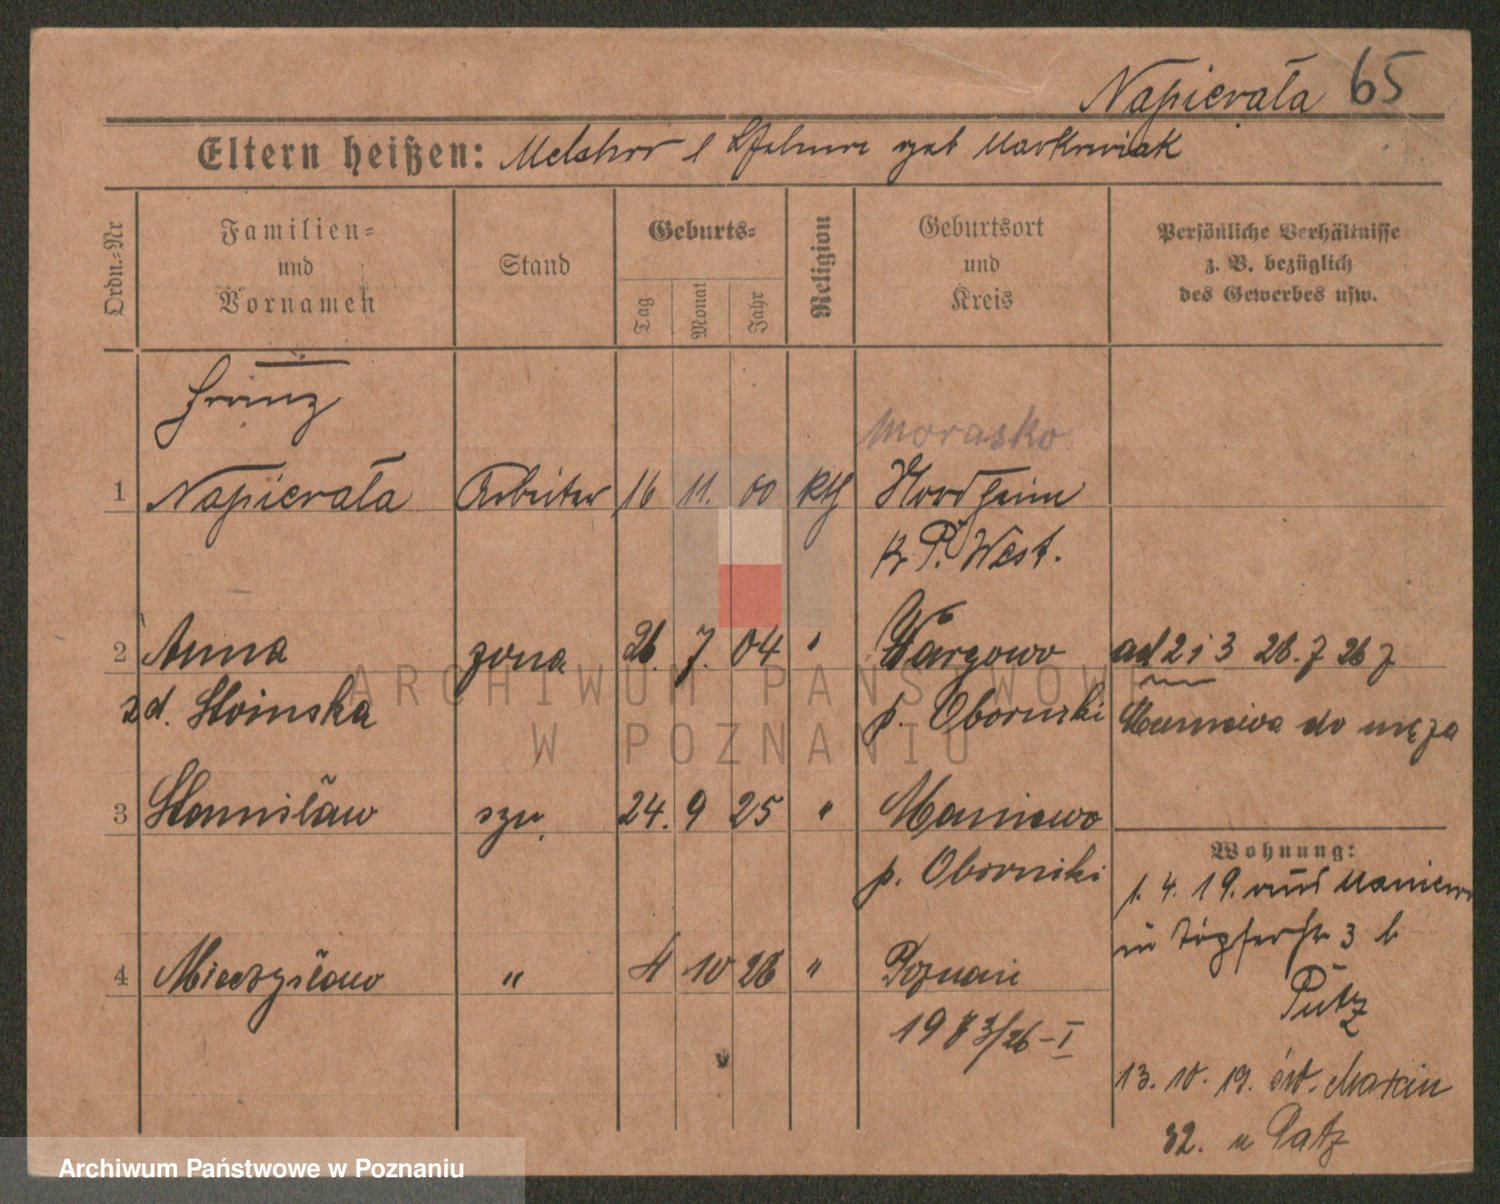 Napierała 65
Eltern heißen: Melchior
Markowiak
Ordn.-Nr
Familien-
und
Vornamen
Stand
Geburts-
Tag
Monat
Jahr
Religion
Geburtsort
und
Kreis
Persönliche Verhältnisse
z. B. bezüglich
des Gewerbes usw.
Franz
Morasko
1 Napierała Arbeiter 16 11. 00 kth Nordheim
Kr. P. West.
2 Anna żona 26. 7. 04 " Wargowo
zd. Słoinska p. Oborniki
ad 2 i 3 28. 7 26 z
Maniewa do męża
3 Stanisław syn 24. 9 25 " Maniewo
p. Oborniki
Wohnung:
1. 4. 19. aus Maniewo
in Töpferstr 3 b
Putz
4 Mieczysław " 4 10 26 " Poznań
/26-I
13. 10. 19. św. Marcin
32. u Patz
ARCHIWUM PAŃSTWOWE
W POZNANIU
Archiwum Państwowe w Poznaniu